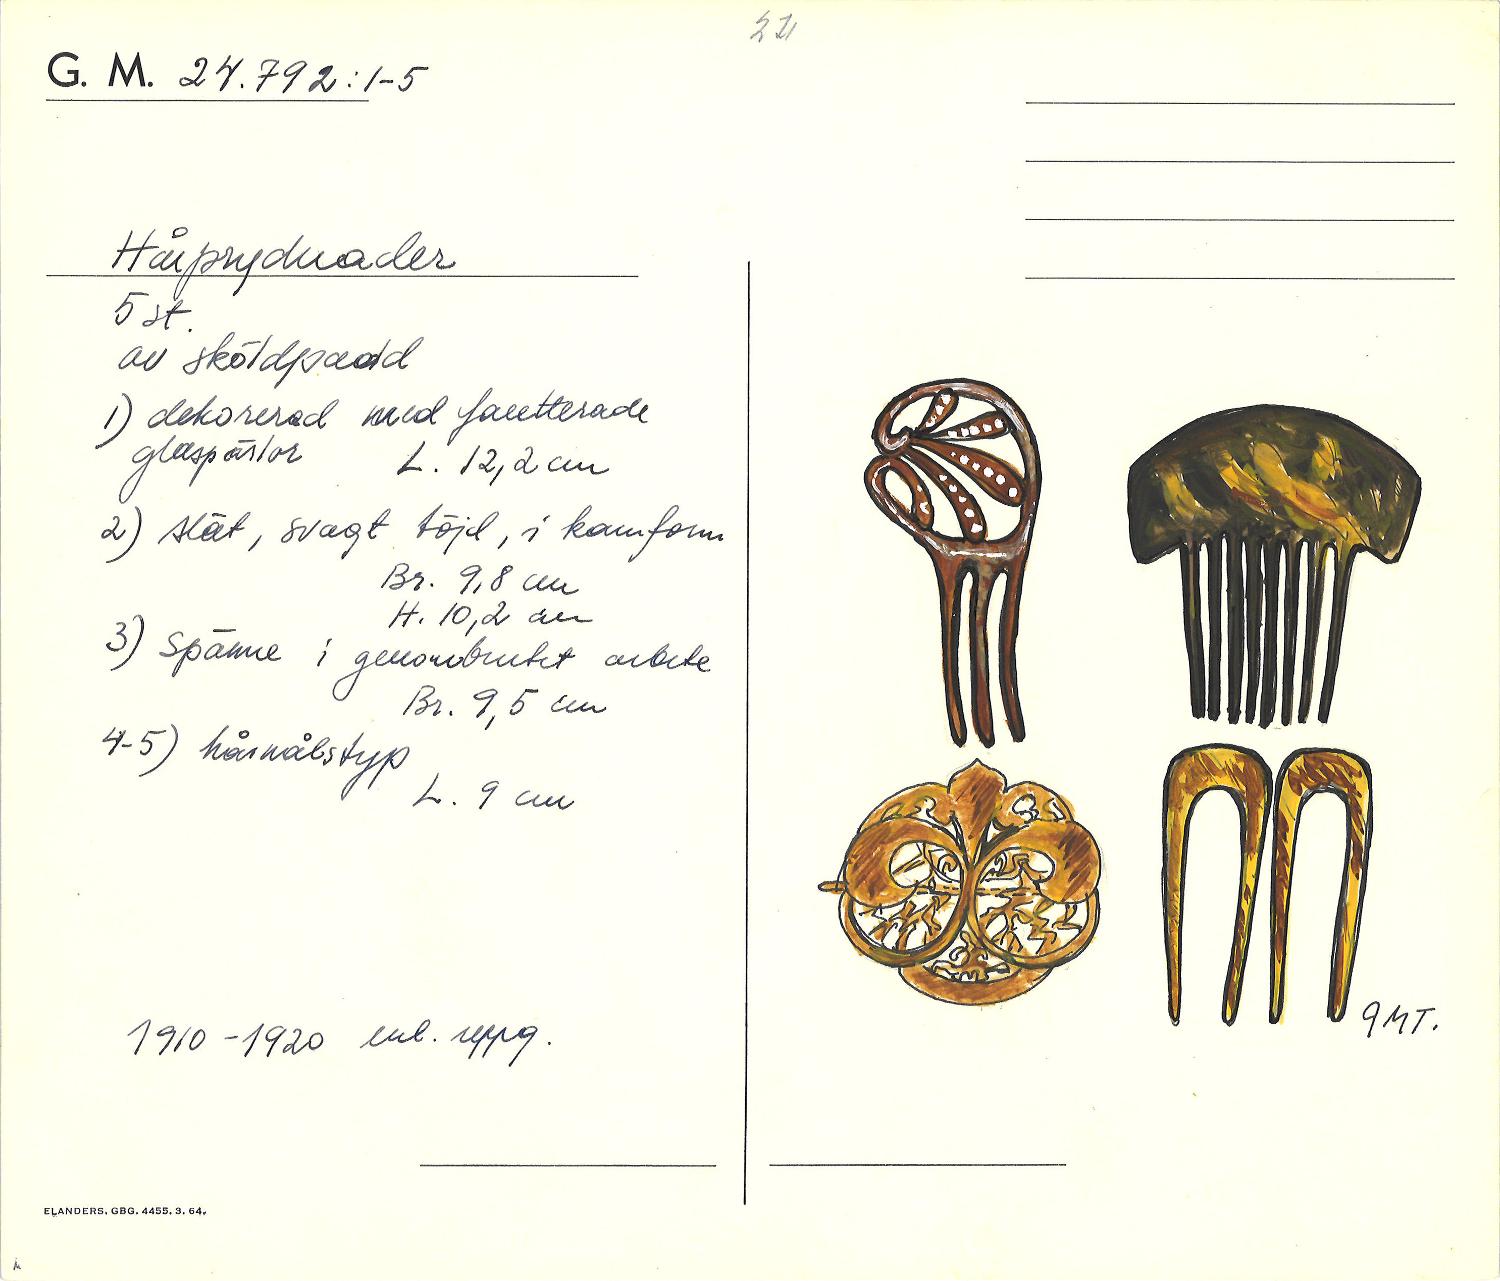 21
G. M. 24.792:1-5
Hårprydnader
5 st.
av sköldpadd
1) dekorerad med facetterade
glaspärlor L. 12,2 cm
2) slät, svagt böjd, i kamform
Br. 9,8 cm
H. 10,2 cm
3) spänne i genombrutet arbete
Br. 9,5 cm
4-5) hårnålstyp
L. 9 cm
1910-1920 enl. uppg.
GMT.
ELANDERS. GBG. 4455. 3. 64.